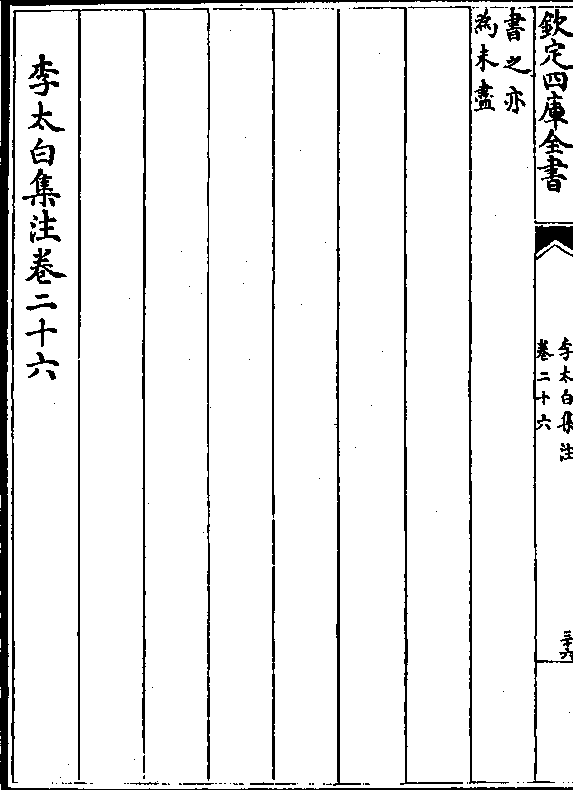 欽定四庫全書
李太白集注
卷二十六
三十六
書之亦
為未盡
李太白集注卷二十六